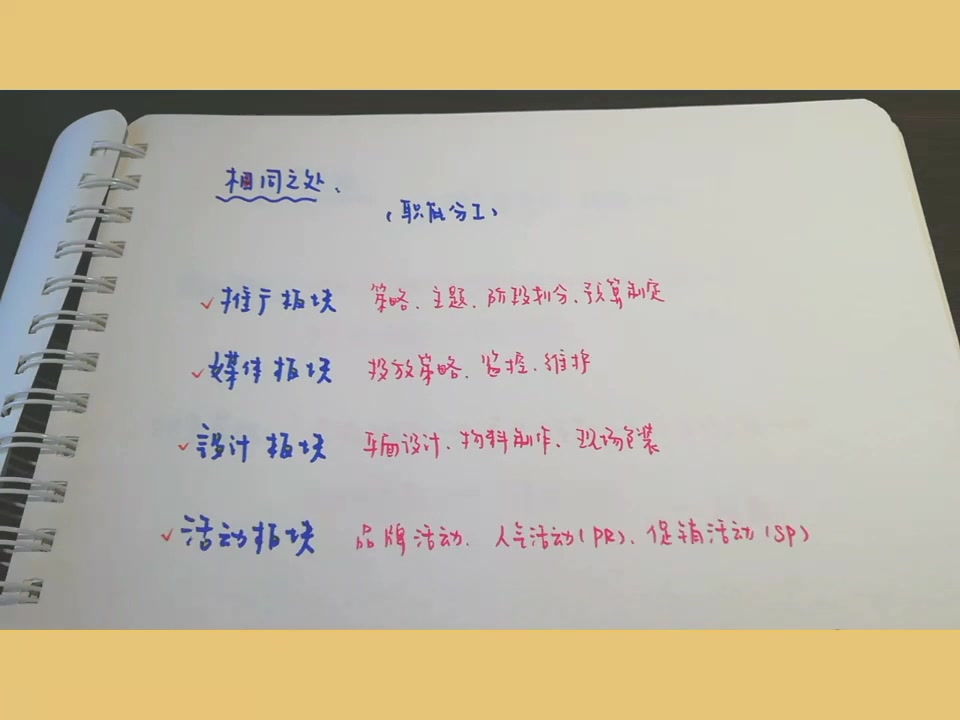 相同之处、
(职能分工)
推广板块 策略、主题、阶段划分、预算制定
媒体板块 投放策略、监控、维护
設计板块 平面设计、物料制作、现场包装
活动板块 品牌活动、人气活动(PR)、促销活动(SP)